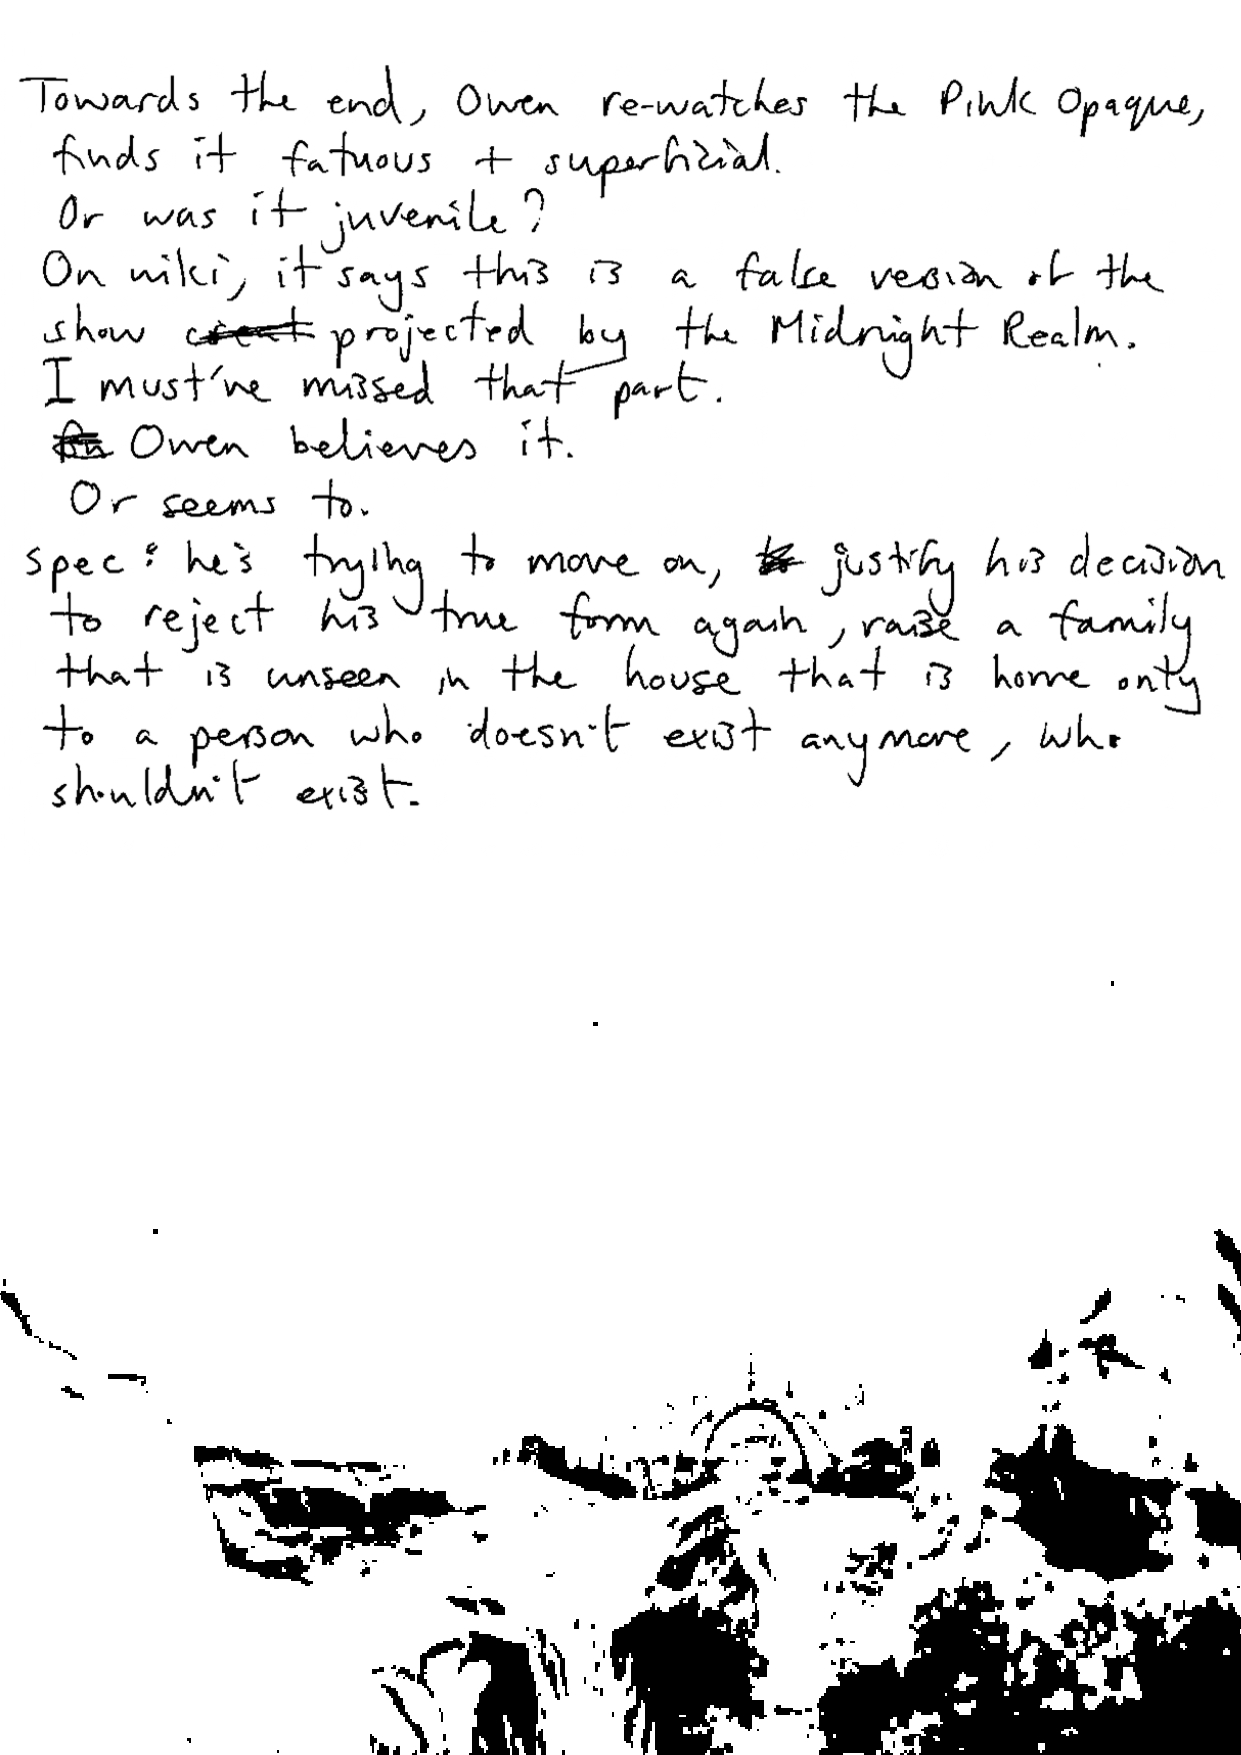 Towards the end, Owen re-watches the Pink Opaque,
finds it fatuous + superficial.
Or was it juvenile?
On wiki, it says this is a false version of the
show projected by the Midnight Realm.
I must've missed that part.
Owen believes it.
Or seems to.
spec: he's trying to move on, justify his decision
to reject his true form again, raise a family
that is unseen in the house that is home only
to a person who doesn't exist anymore, who
shouldn't exist.